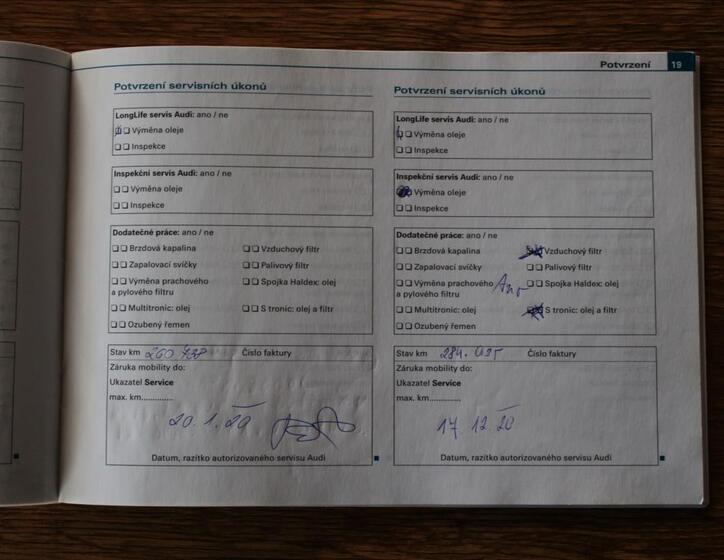 Potvrzení 19
Potvrzení servisních úkonů
LongLife servis Audi: ano / ne
Výměna oleje
Inspekce
Inspekční servis Audi: ano / ne
Výměna oleje
Inspekce
Dodatečné práce: ano / ne
Brzdová kapalina Vzduchový filtr
Zapalovací svíčky Palivový filtr
Výměna prachového Spojka Haldex: olej
a pylového filtru
Multitronic: olej S tronic: olej a filtr
Ozubený řemen
Stav km Číslo faktury
Záruka mobility do:
Ukazatel Service
max. km.............
20.1.20
Datum, razítko autorizovaného servisu Audi
Potvrzení servisních úkonů
LongLife servis Audi: ano / ne
Výměna oleje
Inspekce
Inspekční servis Audi: ano / ne
Výměna oleje
Inspekce
Dodatečné práce: ano / ne
Brzdová kapalina Vzduchový filtr
Zapalovací svíčky Palivový filtr
Výměna prachového Ano Spojka Haldex: olej
a pylového filtru
Multitronic: olej S tronic: olej a filtr
Ozubený řemen
Stav km Číslo faktury
Záruka mobility do:
Ukazatel Service
max. km.............
17 12 20
Datum, razítko autorizovaného servisu Audi